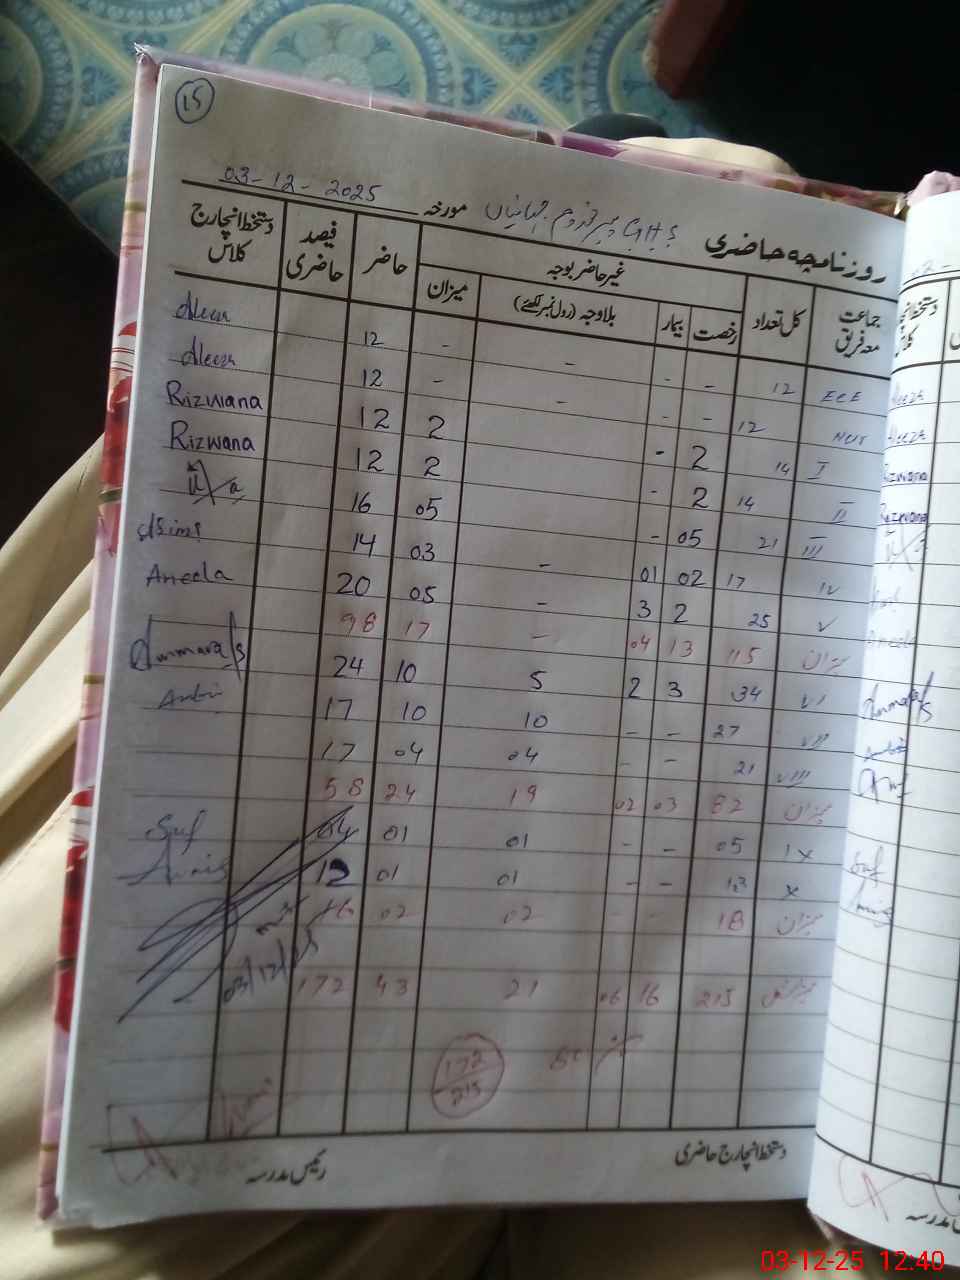 15
03-12-2025 مورخہ
روزنامچہ حاضری
جماعت معہ فریق کل تعداد غیر حاضر بوجہ حاضر فیصد حاضری دستخط انچارج کلاس
رخصت بیمار بلاوجہ (رول نمبر لکھئے) میزان
ECE 12 - - - - 12
Nur 12 - - - - 12 Aleeza
I 14 2 - 2 12 Rizwana
II 14 2 - 2 12 Rizwana
III 21 05 - 05 16
IV 17 02 01 - 03 14
V 25 2 3 - 05 20 Aneela
میزان 115 13 04 - 17 98
VI 34 3 2 5 10 24
VII 27 - - 10 10 17
VIII 21 - - 04 04 17
میزان 82 03 02 19 24 58
IX 05 - - 01 01 04
X 13 - - 01 01 12
میزان 18 - - 02 02 16
215 16 06 21 43 172
03/12/25
172
215
دستخط انچارج حاضری
رئیس مدرسہ
03-12-25 12:40